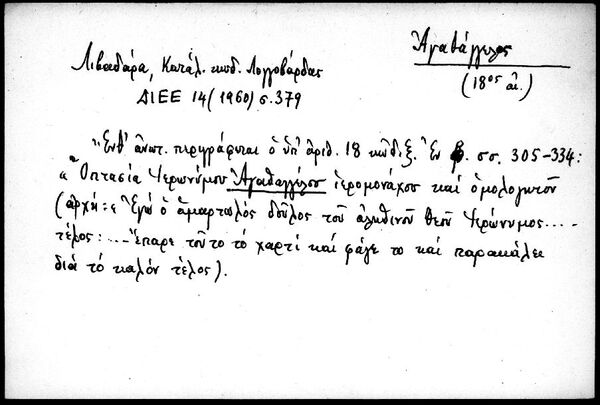 Ἀγαθάγγελος
(18ος αἰ.)
Λιβαδάρα, Κατάλ. κωδ. Λογγοβάρδας
ΔΙΕΕ 14 (1960) σ. 379
"Ἔνθ' ἀνωτ. περιγράφεται ὁ ὑπ' ἀριθ. 18 κῶδιξ. Ἐν σσ. 305-334:
« Ὀπτασία Ἱερωνύμου Ἀγαθαγγέλου ἱερομονάχου καὶ ὁμολογητοῦ
(ἀρχή: « Ἐγώ ὁ ἁμαρτωλός δοῦλος τοῦ ἀληθινοῦ θεοῦ Ἱερώνυμος....-
τέλος: ... ἔπαρε τοῦτο τό χαρτί καί φάγε το καί παρακάλει
διά τό καλόν τέλος).